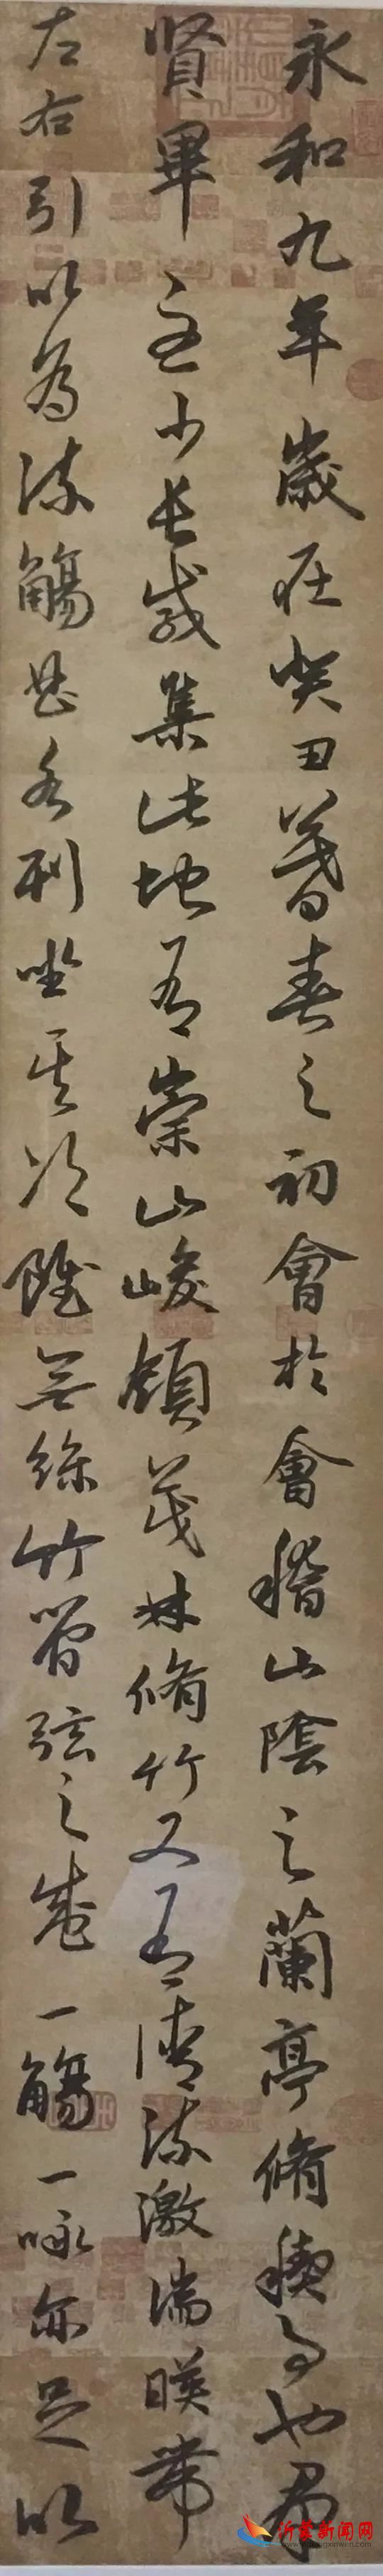 永和九年歲在癸丑暮春之初會於會稽山陰之蘭亭脩稧事也羣
賢畢至少長咸集此地有崇山峻領茂林脩竹又有清流激湍暎帶
左右引以為流觴曲水列坐其次雖無絲竹管弦之盛一觴一咏亦足以
沂蒙新闻网